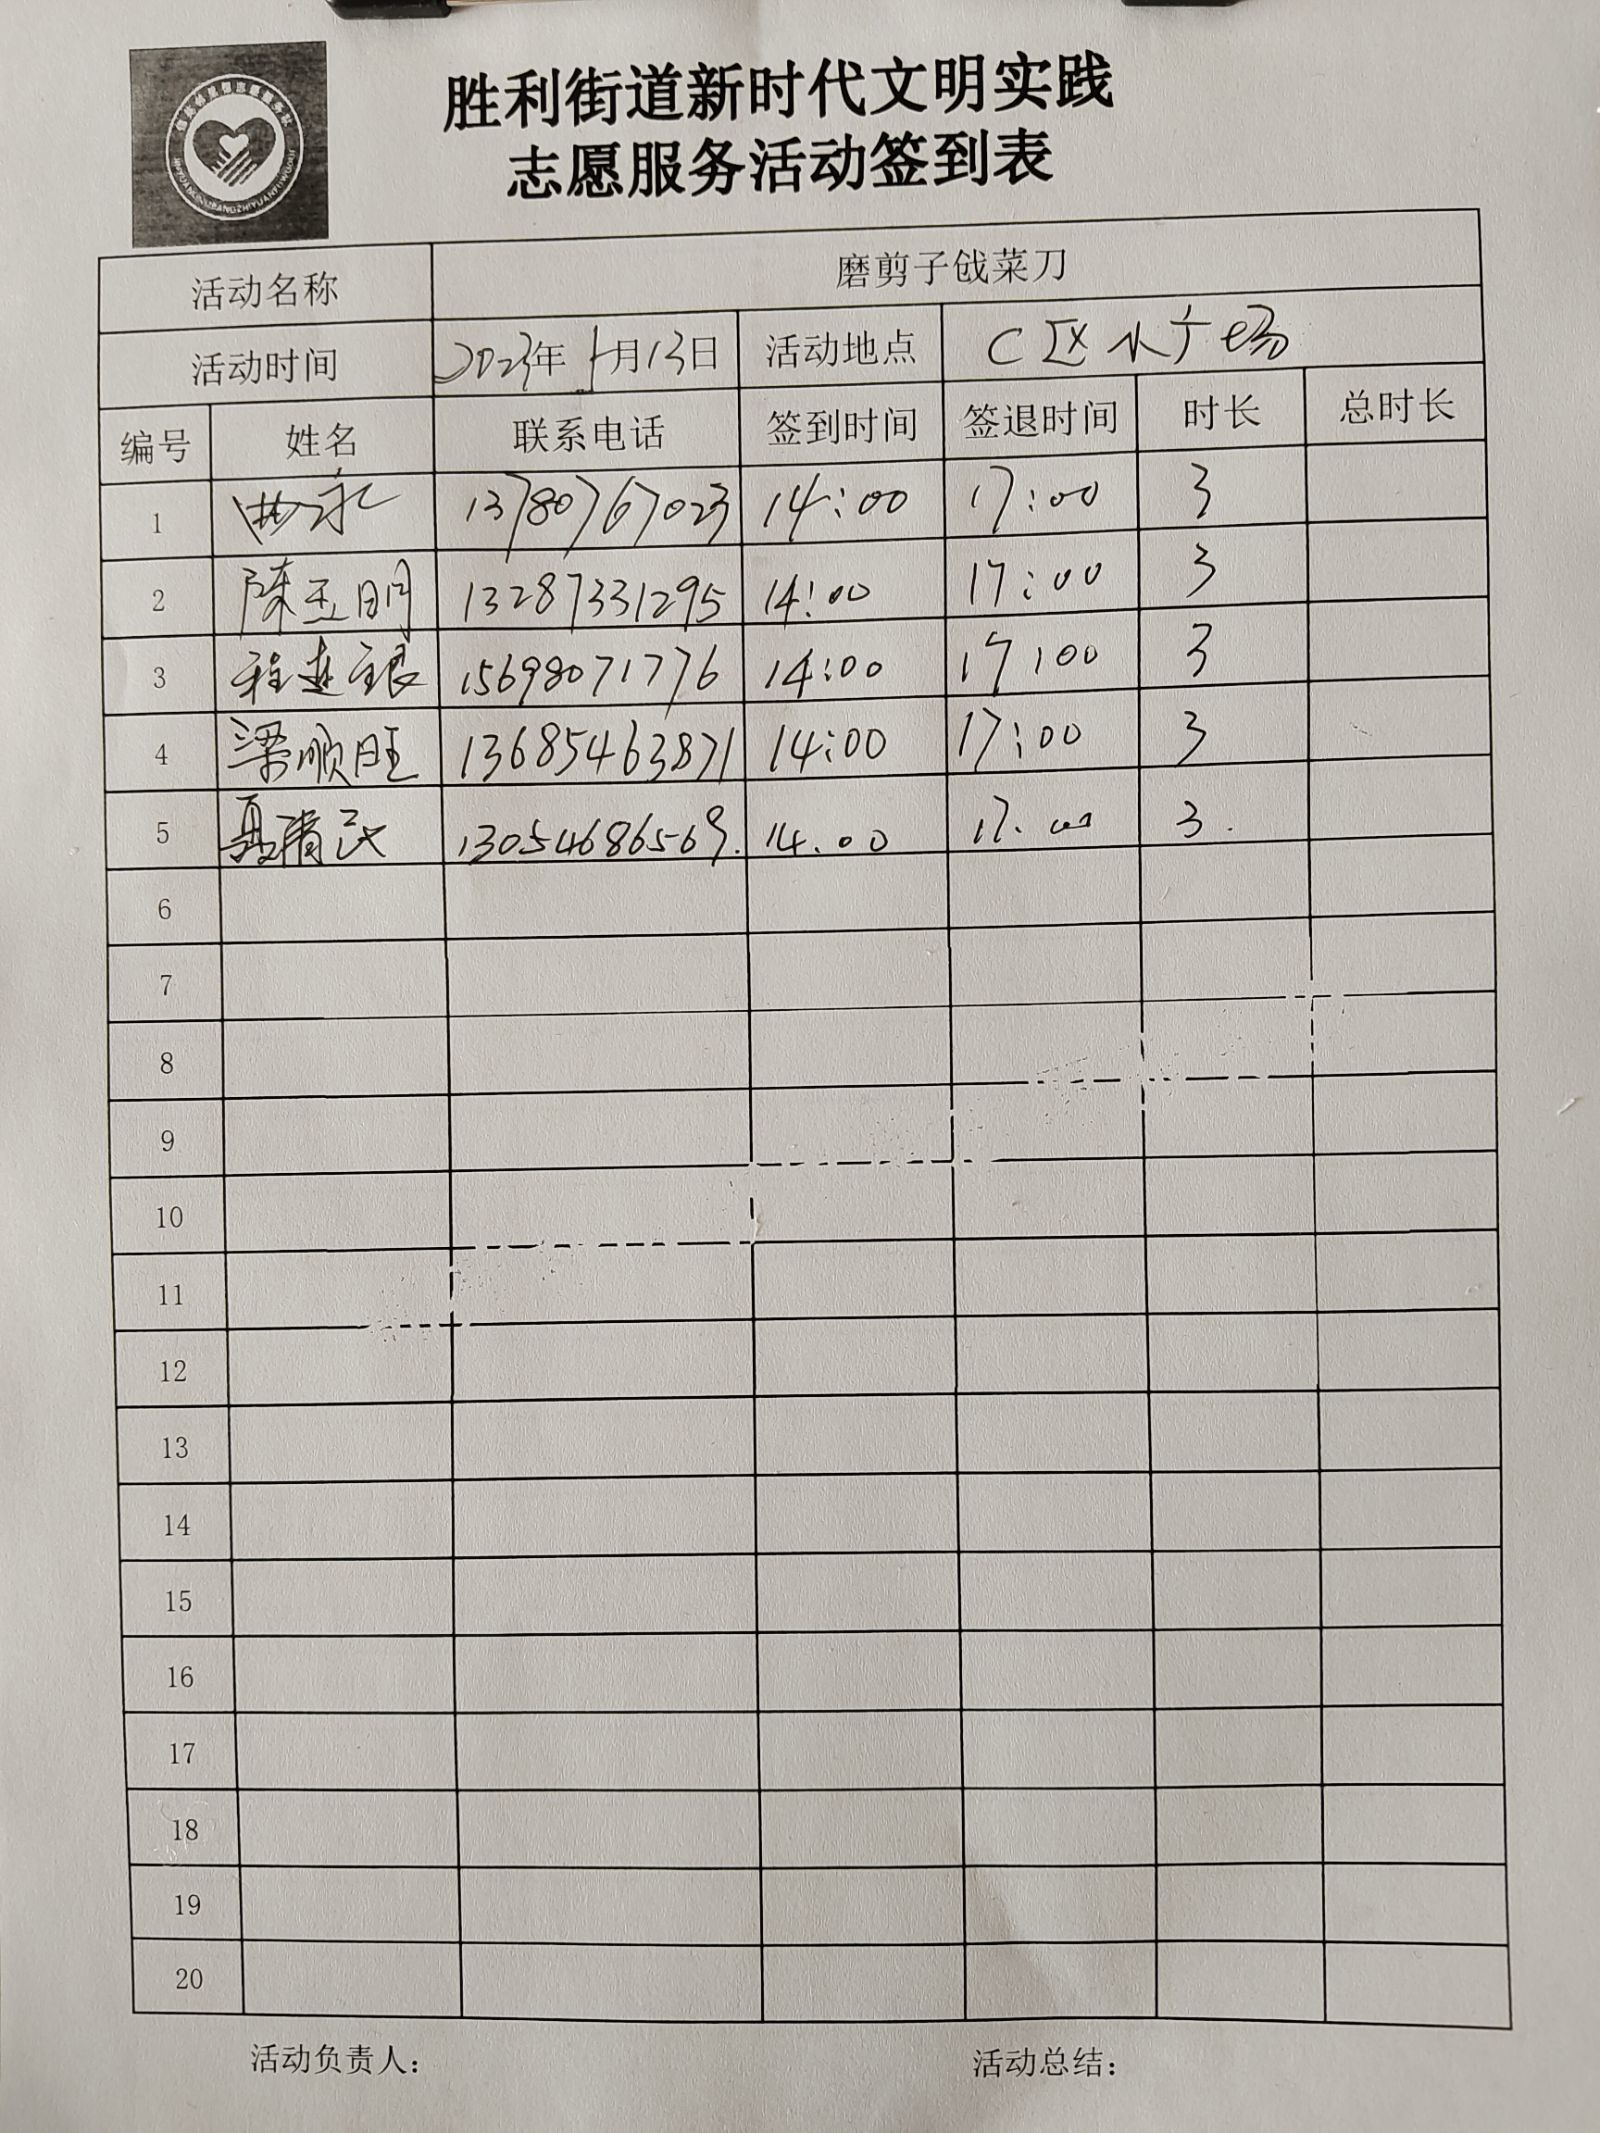 胜利街道新时代文明实践
志愿服务活动签到表
活动名称 磨剪子戗菜刀
活动时间 2023年 月13日 活动地点 C区小广场
编号 姓名 联系电话 签到时间 签退时间 时长 总时长
1 曲永 13780767023 14:00 17:00 3
2 陈玉明 13287331295 14:00 17:00 3
3 程连银 15698071776 14:00 17:00 3
4 梁顺旺 13685463871 14:00 17:00 3
5 聂清民 13054686569. 14.00 17.00 3.
6
7
8
9
10
11
12
13
14
15
16
17
18
19
20
活动负责人： 活动总结：